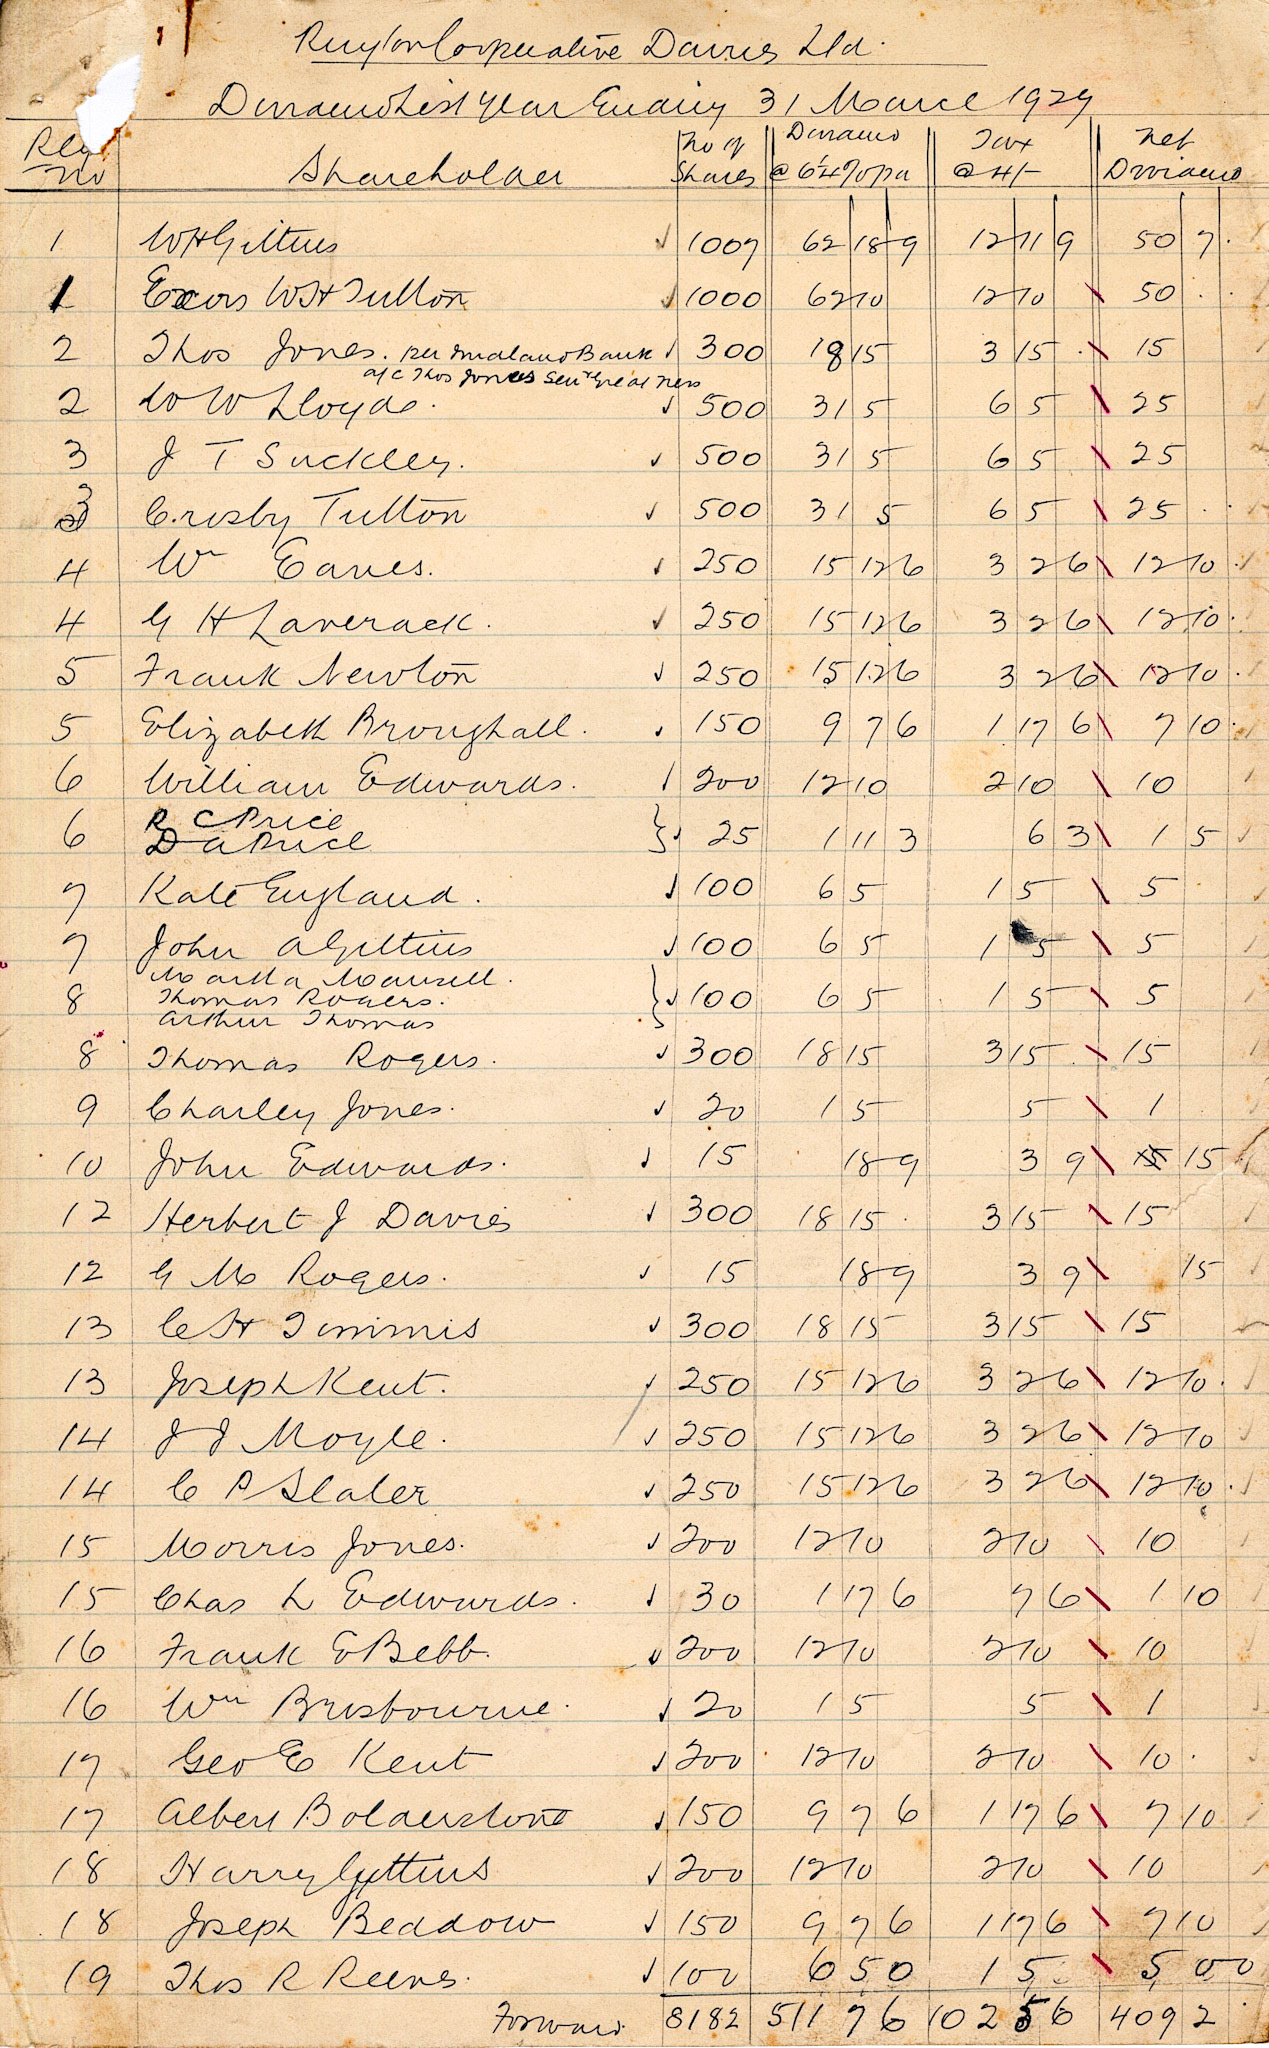 Ruyton Cooperative Dairies Ltd.
Dividend List Year Ending 31 March 1929
Reg No Shareholder No of Shares Dividend @ 6¼% pa Tax @ 4/- Net Dividend
1 W H Gittins ✓ 1007 62 18 9 12 11 9 50 7 .
1 Exors W H Tutton ✓ 1000 62 10 12 10 \ 50 . .
2 Thos Jones. per Midland Bank ✓ 300 18 15 3 15 . \ 15
a/c Thos Jones Senr Great Ness
2 W W Lloyds. ✓ 500 31 5 6 5 \ 25
3 J T Suckley. ✓ 500 31 5 6 5 \ 25
3 Crosby Tutton ✓ 500 31 5 6 5 \ 25 . .
4 Wm Eaves. ✓ 250 15 12 6 3 2 6 \ 12 10 .
4 G H Laverack. ✓ 250 15 12 6 3 2 6 \ 12 10 .
5 Frank Newton ✓ 250 15 12 6 3 2 6 \ 12 10 .
5 Elizabeth Broughall. ✓ 150 9 7 6 1 17 6 \ 7 10 .
6 William Edwards. ✓ 200 12 10 2 10 \ 10
R C Price
6 D A Price } ✓ 25 1 11 3 6 3 \ 1 5
7 Kate England. ✓ 100 6 5 1 5 \ 5
7 John A Gittins ✓ 100 6 5 1 5 \ 5
Martha Mansell.
8 Thomas Rogers. } ✓ 100 6 5 1 5 \ 5
Arthur Thomas
8 Thomas Rogers. ✓ 300 18 15 3 15 . \ 15
9 Charley Jones. ✓ 20 1 5 5 \ 1
10 John Edwards. ✓ 15 18 9 3 9 \ 15 15
12 Herbert J Davies ✓ 300 18 15 . 3 15 \ 15
12 G M Rogers. ✓ 15 18 9 3 9 \ 15
13 C H Timmis ✓ 300 18 15 3 15 \ 15
13 Joseph Kent. ✓ 250 15 12 6 3 2 6 \ 12 10 .
14 J J Moyle. ✓ 250 15 12 6 3 2 6 \ 12 10
14 C P Slater ✓ 250 15 12 6 3 2 6 \ 12 10 .
15 Morris Jones. ✓ 200 12 10 2 10 \ 10
15 Chas L Edwards. ✓ 30 1 17 6 7 6 \ 1 10
16 Frank E Bebb. ✓ 200 12 10 2 10 \ 10
16 Wm Brisbourne. ✓ 20 1 5 5 \ 1
17 Geo E Kent ✓ 200 12 10 2 10 \ 10 .
17 Albert Bolderstone ✓ 150 9 7 6 1 17 6 \ 7 10
18 Harry Gittins ✓ 200 12 10 2 10 \ 10
18 Joseph Beddow ✓ 150 9 7 6 1 17 6 \ 7 10
19 Thos R Reeves. ✓ 100 6 5 0 1 5 \ 5 00
Forward 8182 511 7 6 102 5 6 409 2 .